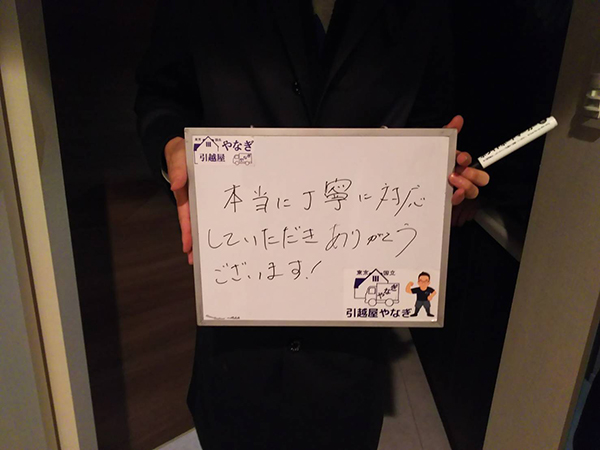 やなぎ
引越屋
本当に丁寧に対応
していただきありがとう
ございます!
東京 国立
やなぎ
引越屋やなぎ